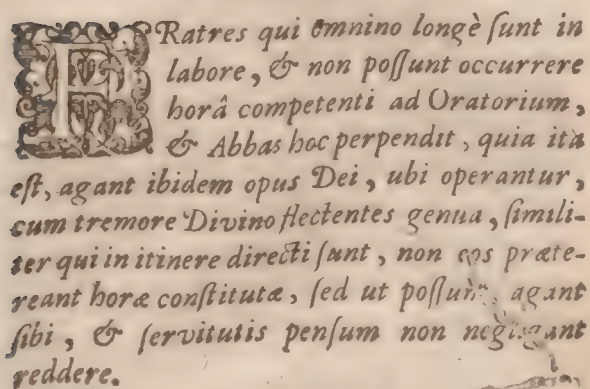 FRatres qui omnino longè sunt in
labore, & non possunt occurrere
horâ competenti ad Oratorium,
& Abbas hoc perpendit, quia ita
est, agant ibidem opus Dei, ubi operantur,
cum tremore Divino flectentes genua, simili-
ter qui in itinere directi sunt, non eos præte-
reant horæ constitutæ, sed ut possunt, agant
sibi, & servitutis pensum non negligant
reddere.